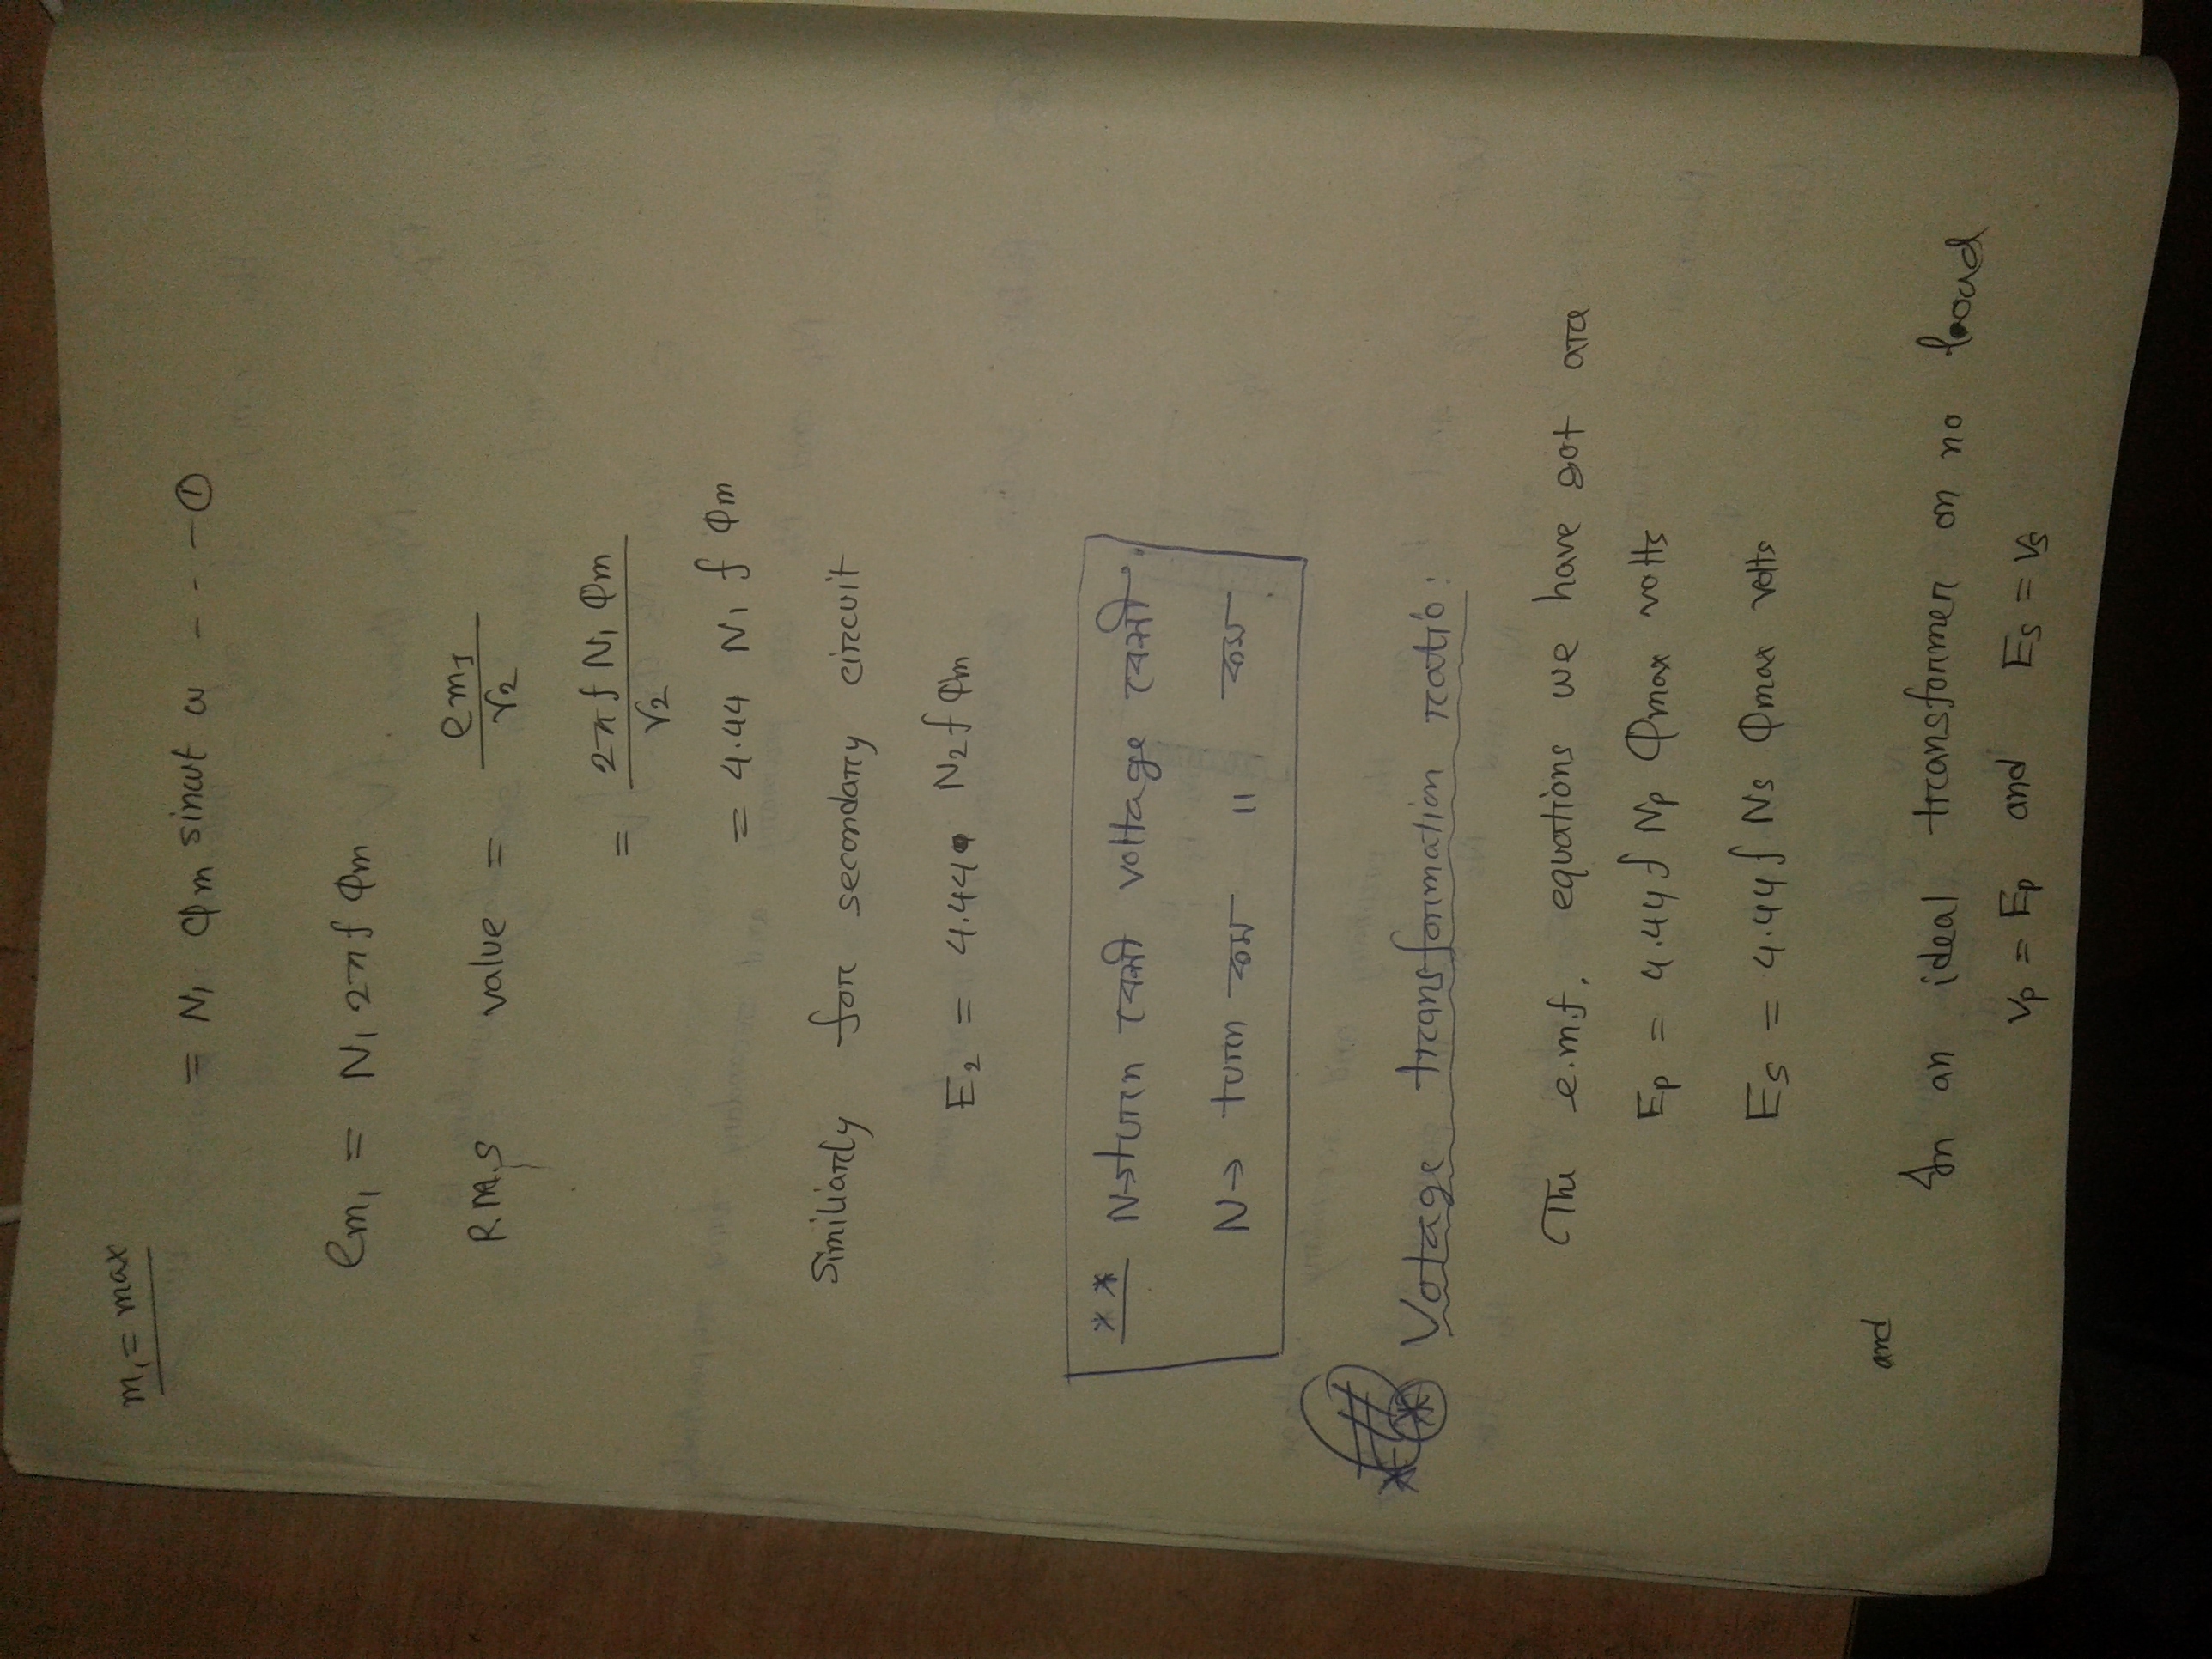 m₁ = max
= N₁ Φm sinωt ω - - - ①
em₁ = N₁ 2πf Φm
R.M.S value = em₁/√2
= 2πf N₁ Φm/√2
= 4.44 N₁ f Φm
Similiarly for secondary circuit
E₂ = 4.44 N₂ f Φm
** N→turn বেশী voltage বেশী
N→ turn কম " কম
* * Votage transformation ratio:
The e.m.f. equations we have got are
Ep = 4.44 f Np Φmax volts
Es = 4.44 f Ns Φmax volts
and
In an ideal transformer on no load
Vp = Ep and Es = Vs